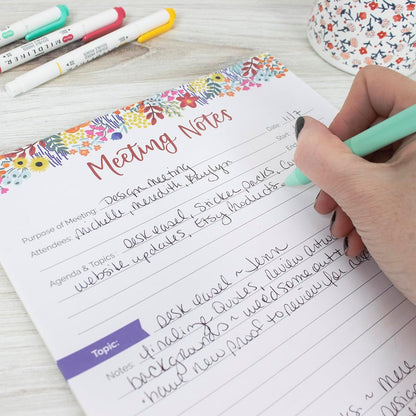 MILDLINER
Meeting Notes
Date: 11/7
Start:
Purpose of Meeting: Design Meeting
End
Attendees: Michelle, Meredith, Kaylyn
Agenda & Topics: Desk easel, Sticker packs, Ca
website updates, Etsy Products
Topic:
Desk easel ~ Jenn
Notes: quotes, review artwo
backgrounds ~ need some outt
• have new proof to review for